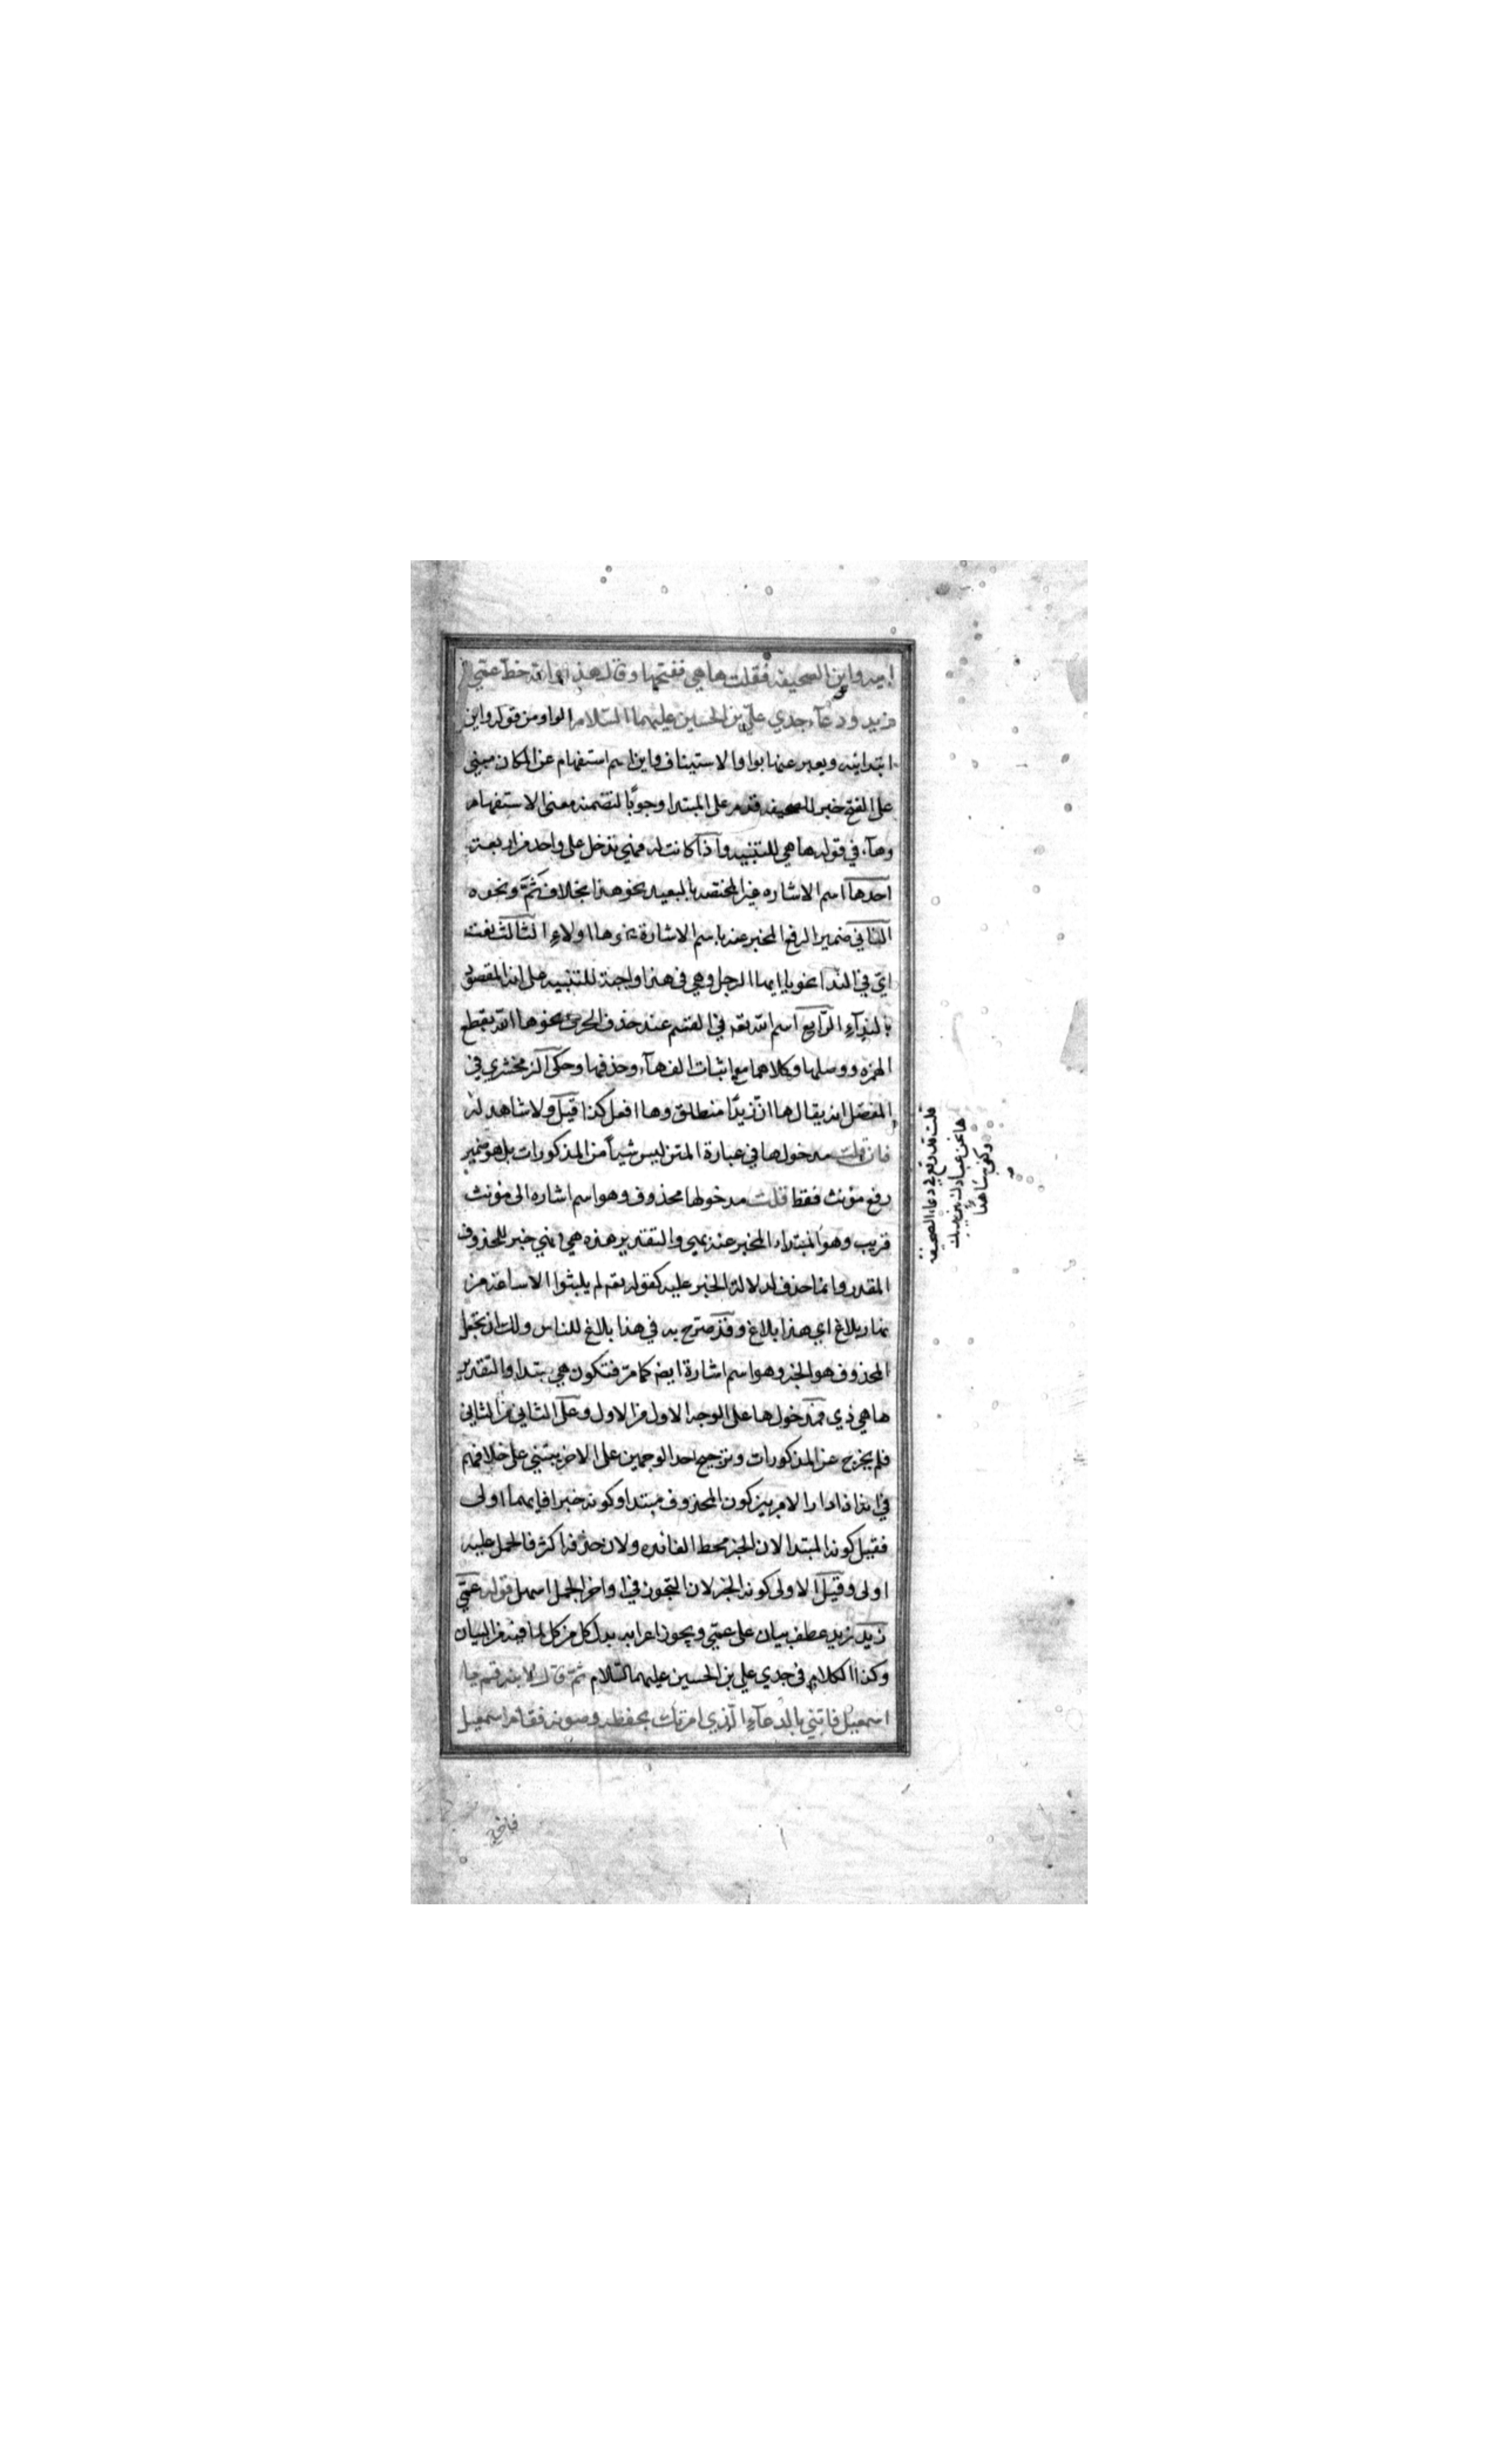 اليه واين الصحيفه فقلت ها هي ففتحها وقال هذا والله خط عمّي
زيد ودعآء جدي عليّ بن الحسين عليهما السّلام الواو من قوله واين
ابتدائيه ويعبر عنها بواو الاستيناف واين اسم استفهام عن المكان مبني
على الفتح خبر للصحيفه قدم على المبتدا وجوبًا لتضمنه معنى الاستفهام
وهآء في قوله ها هي للتنبيه وآذا كانت له فهي تدخل على واحد من اربعة
آحدها اسم الاشاره غير المختصه بالبعيد نحو هذا بخلاف ثَمَّ ونحوه
الثاني ضمير الرفع المخبر عنه باسم الاشارة نحو ها اولاءِ الثالث نعت
ايّ في الندا نحو يا ايها الرجل وهي في هذا واجبة للتنبيه على انه المقصود
بالندآءِ الرّابع اسم الله تعه في القسم عند حذف الحرف نحو ها الله بقطع
الهمزه ووصلها وكلاهما مع اثبات الف هآء وحذفها وحكى الزمخشري في
المفصّل انه يقال ها انّ زيدًا منطلق وها افعل كذا قيل ولا شاهد له
فان قلت مدخول ها في عبارة المتن ليس شيأً من المذكورات بل هو ضمير
رفع مؤنث فقط قلت مدخولها محذوف وهو اسم اشاره الى مؤنث
قريب وهو المبتداء المخبر عنه بهي والتقدير هذه هي فهي خبر للمحذوف
المقدر وانما حذف لدلالة الخبر عليه كقوله تعه لم يلبثوا الا ساعة من
نهار بلاغ اي هذا بلاغ وقد صرّح به في هذا بلاغ للناس ولك ان تجعل
المحذوف هو الخبر وهو اسم اشارة ايضه كما مرّ فتكون هي مبتدا والتقدير
ها هي ذي فمدخول ها على الوجه الاول من الاول وعلى الثاني من الثاني
فلم يخرج عن المذكورات وترجيح احد الوجهين على الاخر يبتني على خلافهم
في انه اذا دار الامر بين كون المحذوف مبتدا وكونه خبرا فايهما اولى
فقيل كونه المبتدا لان الخبر محط الفائده ولان حذفه اكثر فالحمل عليه
اولى وقيل الاولى كونه الخبر لان التجوز في اواخر الجمل اسهل قوله عمّي
زيد زيد عطف بيان على عمّي ويجوز اعرابه بدل كل من كل لما فيه من البيان
وكذا الكلام في جدي علي بن الحسين عليهما السّلام ثمّ قال لابنه قم يا
اسمعيل فاتني بالدعآءِ الّذي امرتك بحفظه وصونه فقام اسمعيل
قلت قد وقع في دعاء الصحيفة
ها نحن عبادك بين يديك
وكفى شاهدا
فاخرج